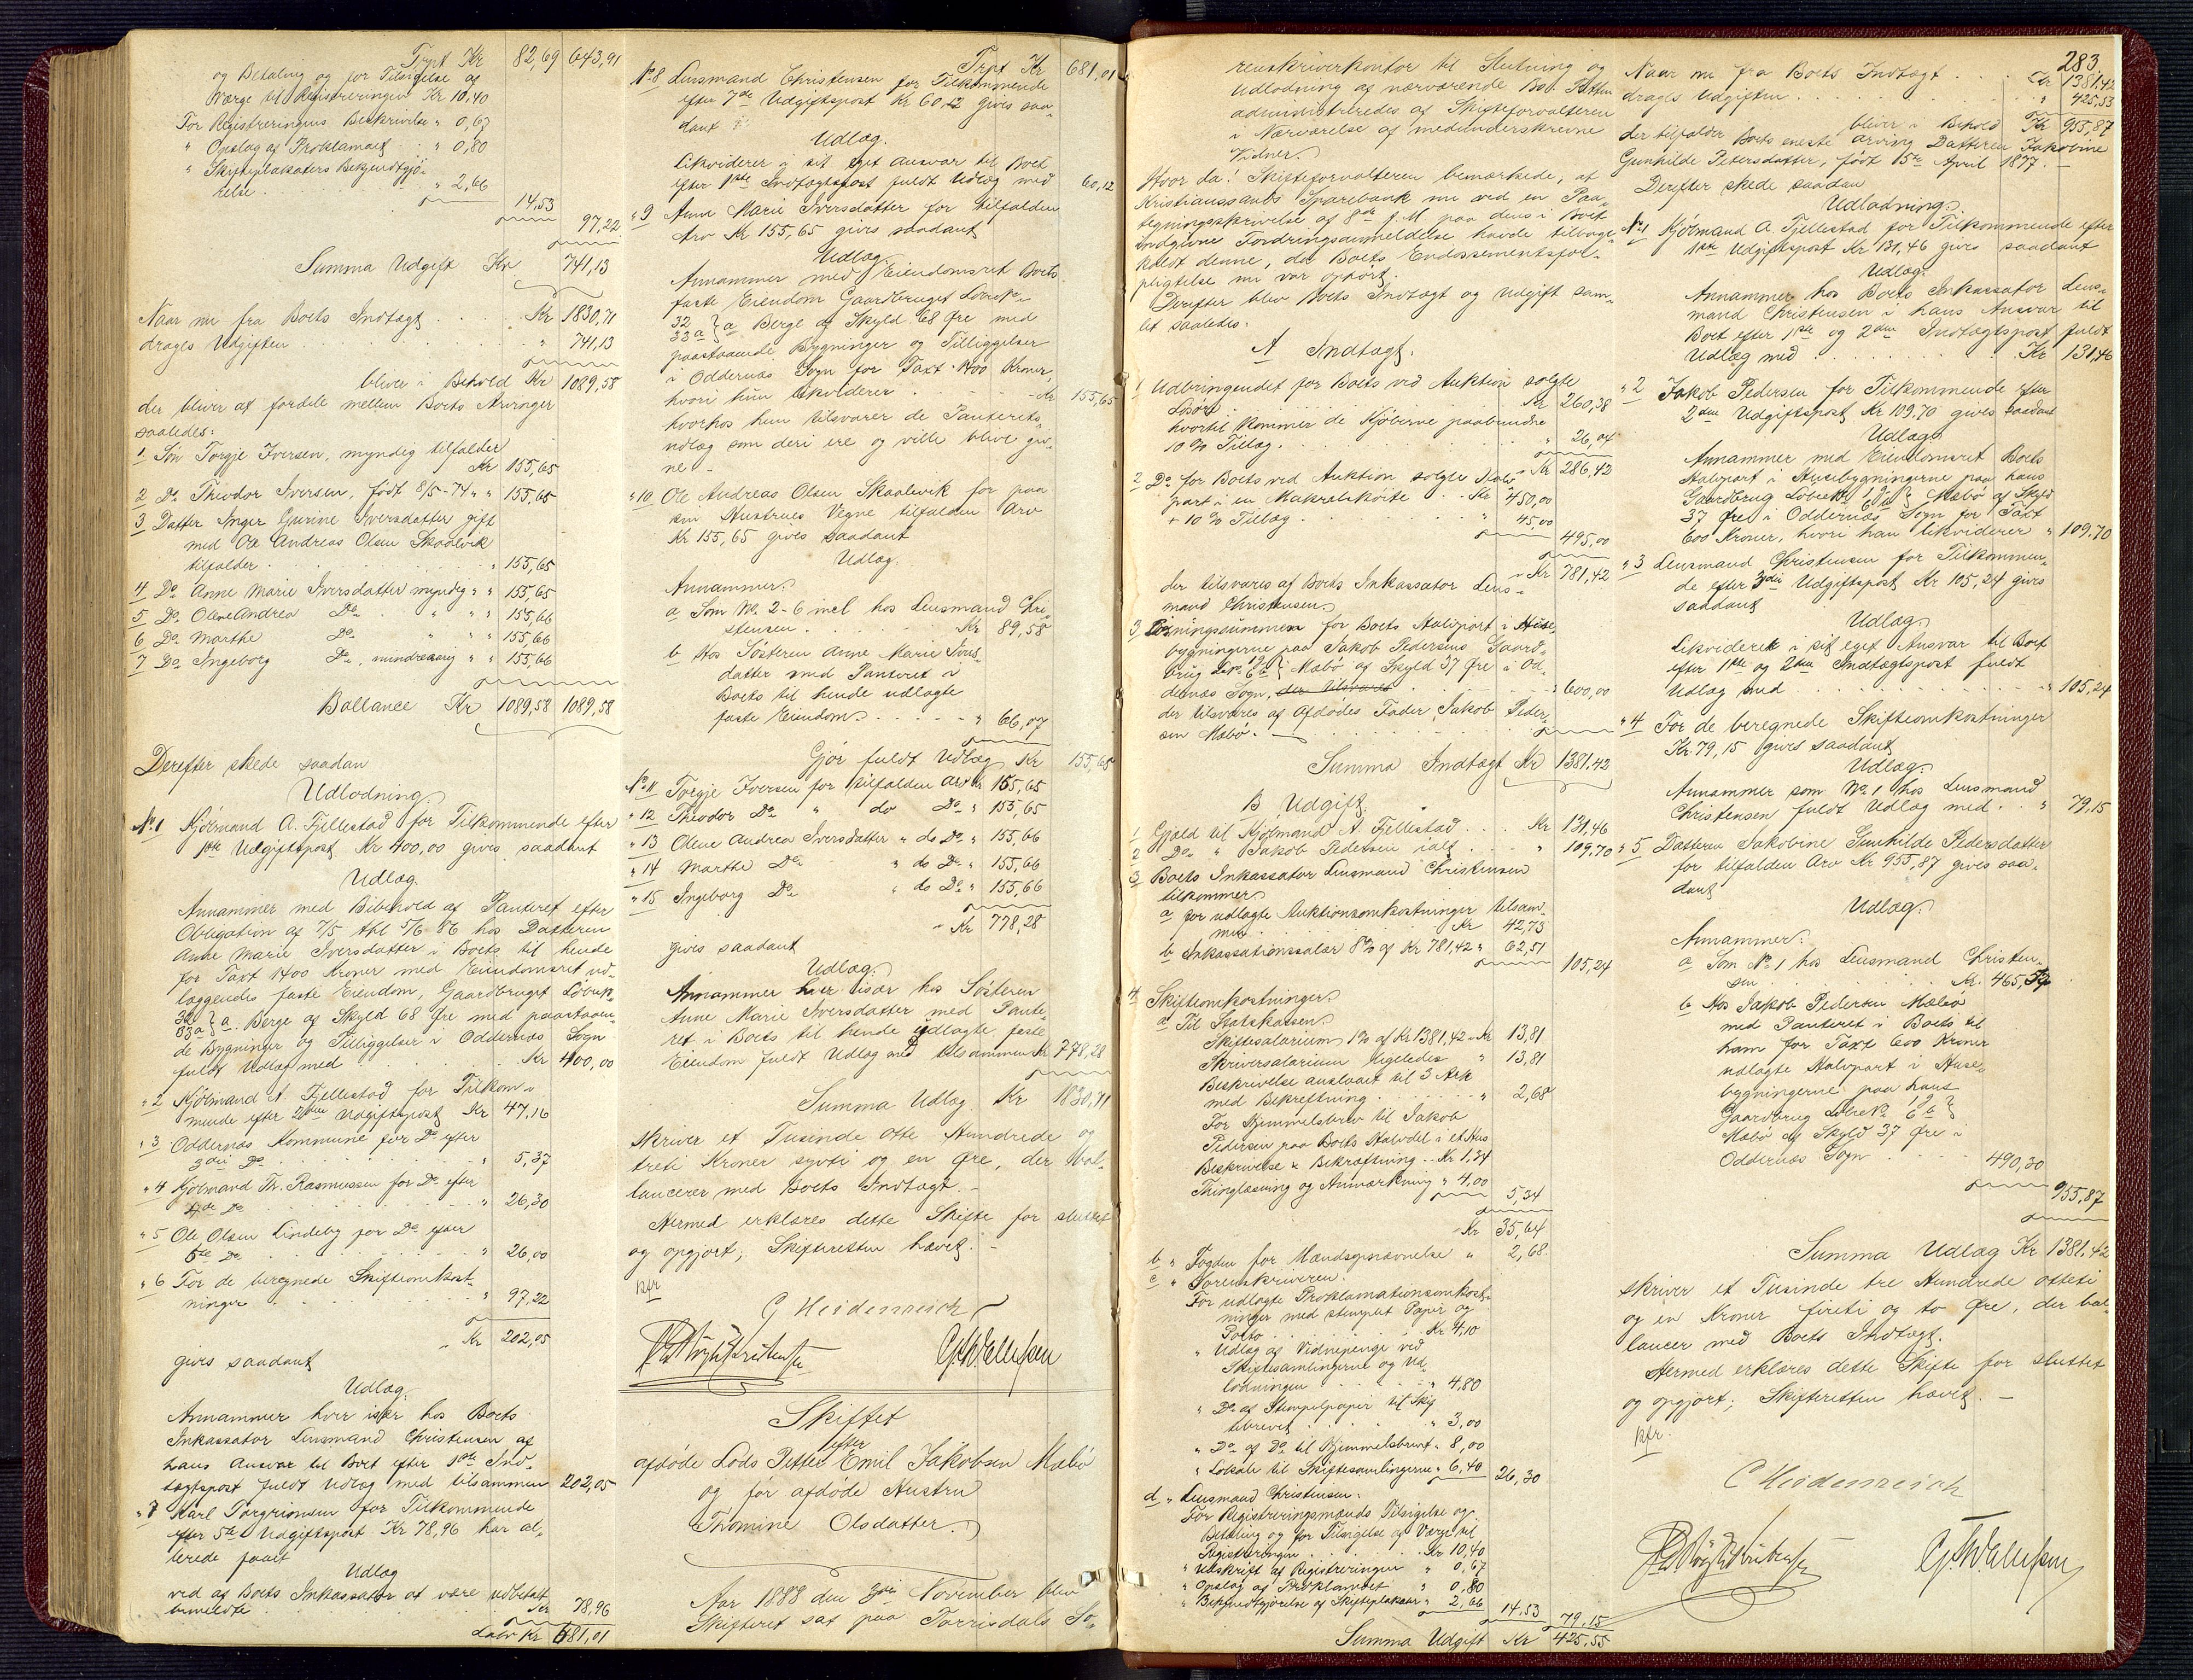 Trpt Kr 82,69 643,91
og Betaling og for Tilsigelse af
Værge til Registreringen Kr 10,40
For Registreringens Beskrivelse " 0,67
" Opslag af Proklamaet " 0,80
" Skifteplakaters Bekjendtgjø-
relse . . . " 2,66
14,53
97,22
Summa Udgift Kr 741,13
Naar nu fra Boets Indtægt . . . Kr 1830,71
drages Udgiften . . . " 741,13
bliver i Behold Kr 1089,58
der bliver at fordele mellem Boets Arvinger
saaledes:
1 Søn Torgje Iversen, myndig tilfalder
Kr 155,65
2 Do Theodor Iversen, født 8/5-74 " " 155,65
3 Datter Inger Gurine Iversdatter gift
med Ole Andreas Olsen Skaalevik
tilfalder . . . " 155,65
4 Do Anne Marie Iversdatter myndig " " 155,65
5 Do Olene Andrea Do " " " 155,66
6 Do Marthe Do " " " 155,66
7 Do Ingeborg Do, mindreaarig " " 155,66
Ballance Kr 1089,58 1089,58
Derefter skede saadan
Udlodning.
No 1 Kjøbmand A. Fjellestad for Tilkommende efter
1ste Udgiftspost Kr 400,00 gives saadant
Udlæg.
Annammer med Bibehold af Panteret efter
Obligation af 7/5 tbl 5/6 86 hos Datteren
Anne Marie Iversdatter i Boets til hende
for Taxt 1400 Kroner med Eiendomsret ud-
læggendes faste Eiendom, Gaardbruget Løbe No
32 33a } a. Berge af Skyld 68 Øre med paastaaen-
de Bygninger og Tilliggelser i Oddernæs Sogn
fuldt Udlæg med . . . Kr 400,00
" 2 Kjøbmand A Fjellestad for Tilkom-
mende efter 2den Udgiftspost Kr 47,16
" 3 Oddernæs Kommune for Do efter
3die Do . . . " 5,37
" 4 Kjøbmand Th. Rasmussen for Do efter
4de Do . . . " 26,30
" 5 Ole Olsen Lindeby for Do efter
6te Do . . . " 26,00
" 6 For de beregnede Skifteomkost-
ninger . . . " 97,22
Kr 202,05
gives saadant
Udlæg.
Annammer hver især hos Boets
Inkassator Lensmand Christensen af
hans Ansvar til Boet efter 1ste Ind-
tægtspost fuldt Udlæg med tilsammen 202,05
" 7 Karl Torgrionsen for Tilkommende
efter 5te Udgiftspost Kr 78,96 har al-
lerede faaet
Udlæg
ved af Boets Inkassator at være udbetalt
bemeldte . . . Kr 78,96
Latr Kr 681,01
Trpt Kr 681,01
No 8 Lensmand Christensen for Tilkommende
efter 7de Udgiftspost Kr 60,12 gives saa-
dant
Udlæg.
Likviderer i sit eget Ansvar til Boet
efter 1ste Indtægtspost fuldt Udlæg med 60,12
" 9 Anne Marie Iversdatter for tilfalden
Arv Kr 155,65 gives saadant
Udlæg.
Annammer med Eiendomsret Boets
faste Eiendom Gaardbruget Løbe No
32 33a } a Berge af Skyld 68 Øre med
paastaaende Bygninger og Tilliggelser
i Oddernæs Sogn for Taxt 1400 Kroner,
hvori hun likviderer . . . Kr 155,65
hvorhos hun tilsvarer de Panterets-
udlæg som deri ere og ville blive giv-
ne.
" 10 Ole Andreas Olsen Skaalevik for paa
sin Hustrues Vegne tilfalden Arv
Kr 155,65 gives saadant
Udlæg.
Annammer:
a Som No 2-6 incl hos Lensmand Chri-
stensen . . . Kr 89,58
b Hos Søsteren Anne Marie Ivers-
datter med Panteret i
Boets til hende udlagte
faste Eiendom . . . " 66,07
Gjør fuldt Udlæg Kr 155,65
No 11 Torgje Iversen for tilfalden Arv Kr 155,65
" 12 Theodor Do " do Do " 155,65
" 13 Olene Andrea Iversdatter " do Do " 155,66
" 14 Marthe Do " do Do " 155,66
" 15 Ingeborg Do " do Do " 155,66
Kr 778,28
gives saadant
Udlæg.
Annammer hver især hos Søsteren
Anne Marie Iversdatter med Pante-
ret i Boets til hende udlagte faste
Eiendom fuldt Udlæg med tilsammen Kr 778,28
Summa Udlæg Kr 1830,71
skriver et Tusinde otte Hundrede og
treti Kroner sytti og en Øre, der bal-
lancerer med Boets Indtægt.
Hermed erklæres dette Skifte for sluttet
og opgjort; Skifteretten hævet.
C Heidenreich
Skiftet
efter
afdøde Lods Petter Emil Jakobsen Mæbø
og før afdøde Hustru
Thomine Olsdatter.
Aar 1888 den 3die November blev
Skifteret sat paa Torrisdals So-
283
renskriverkontor til Slutning og
Udlodning af nærværende Bo. Retten
administreredes af Skifteforvalteren
i Nærværelse af medunderskrevne
Vidner.
Hvor da! Skifteforvalteren bemærkede, at
Kristianssands Sparebank nu ved en Paa-
tegningsskrivelse af 8de f.M paa dens i Boet
indgivne Fordringsanmeldelse havde tilbage-
kaldt denne, da Boets Endossementsfor-
pligtelse nu var ophørt.
Derefter blev Boets Indtægt og Udgift sam-
let saaledes:
A Indtægt.
1 Udbringendet for Boets ved Auktion solgte
Løsøre . . . Kr 260,38
hvortil kommer de Kjøberne paabudne
10 % Tillæg . . . " 26,04
Kr 286,42
2 Do for Boets ved Auktion solgte Halv-
part i en Makrelskøite . . Kr 450,00
+ 10 % Tillæg . . . " 45,00
495,00
Kr 781,42
der tilsvares af Boets Inkassator Lens-
mand Christensen.
3 Løsningssummen for Boets Halvpart i Huse-
bygningerne paa Jakob Pedersens Gaard-
brug Mæbø af Skyld 37 Øre i Od-
dernæs Sogn, der tilsvares . . . 600,00
der tilsvares af Afdødes Fader Jakob Peder-
sen Mæbø.
Summa Indtægt Kr 1381,42
B Udgift.
1 Gjæld til Kjøbmand A. Fjellestad . . . Kr 131,46
2 Do " Jakob Pedersen ialt . . . " 109,70
3 Boets Inkassator Lensmand Christensen
tilkommer
a for udlagte Auktionsomkostninger tilsam-
men . . . Kr 42,73
b Inkassationssalær 8 % af Kr 781,42 " 62,51
105,24
4 Skifteomkostninger.
a Til Statskassen.
Skiftesalarium 1 % af Kr 1381,42 Kr 13,81
Skriversalarium ligeledes " 13,81
Beskrivelse anslaaet til 3 Ark
med Bekræftning . . . " 2,68
For Hjemmelsbrev til Jakob
Pedersen paa Boets Halvdel i et Hus
Beskrivelse & Bekræftning . . Kr 1,34
Thinglæsning og Anmærkning " 4,00
5,34
Kr 35,64
b " Fogden for Mandsopnævnelse " 2,68
c " Sorenskriveren:
For udlagte Proklamationsomkost-
ninger med stemplet Papir og
Porto . . . Kr 4,10
" Udlæg af Vidnepenge ved
Skiftesamlingerne og Ud-
lodningen . . . " 4,80
" Do af Stempelpapir til Skif-
tebrevet . . . " 3,00
" Do af Do til Hjemmelsbrevet " 8,00
" Lokale til Skiftesamlingerne " 6,40
26,30
d " Lensmand Christensen:
For Registreringsmænds Tilsigelse og
Betaling og for Tilsigelse af Værge til
Registreringen . . . Kr 10,40
" Udskrift af Registreringen " 0,67
" Opslag af Proklamaet " 0,80
" Bekjendtgjørelse af Skifteplakater " 2,66
14,53
79,15
Summa Udgift Kr 425,55
Naar nu fra Boets Indtægt . . . Kr 1381,42
drages Udgiften . . . " 425,55
bliver i Behold Kr 955,87
der tilfalder Boets eneste Arving Datteren Jakobine
Gunhilde Petersdatter, født 15de April 1877.
Derefter skede saadan
Udlodning.
No 1 Kjøbmand A. Fjellestad for Tilkommende efter
1ste Udgiftspost Kr 131,46 gives saadant
Udlæg.
Annammer hos Boets Inkassator Lens-
mand Christensen i hans Ansvar til
Boet efter 1ste og 2den Indtægtspost fuldt
Udlæg med . . . Kr 131,46
" 2 Jakob Pedersen for Tilkommende efter
2den Udgiftspost Kr 109,70 gives saadant
Udlæg.
Annammer med Eiendomsret Boets
Halvpart i Husebygningerne paa hans
Gaardbrug Løbe No Mæbø af Skyld
37 Øre i Oddernæs Sogn for Taxt
600 Kroner, hvori han likviderer " 109,70
" 3 Lensmand Christensen for Tilkommen-
de efter 3die Udgiftspost Kr 105,24 gives
saadant
Udlæg.
Likviderer i sit eget Ansvar til Boet
efter 1ste og 2den Indtægtspost fuldt
Udlæg med . . . " 105,24
" 4 For de beregnede Skifteomkostninger
Kr 79,15 gives saadant
Udlæg.
Annammer som No 1 hos Lensmand
Christensen fuldt Udlæg med . . " 79,15
" 5 Datteren Jakobine Gunhilde Pedersdatter
for tilfalden Arv Kr 955,87 gives saa-
dant
Udlæg.
Annammer:
a Som No 1 hos Lensmand Christen-
sen . . . Kr. 465,57
b Hos Jakob Pedersen Mæbø
med Panteret i Boets til
ham for Taxt 600 Kroner
udlagte Halvpart i Huse-
bygningerne paa hans
Gaardbrug Løbe No
Mæbø af Skyld 37 Øre i
Oddernæs Sogn . . . 490,30
955,87
Summa Udlæg Kr 1381,42
skriver et Tusinde tre Hundrede otteti
og en Kroner fireti og to Øre, der bal-
lancer med Boets Indtægt.
Hermed erklæres dette Skifte for sluttet
og opgjort; Skifteretten hævet.
C Heidenreich